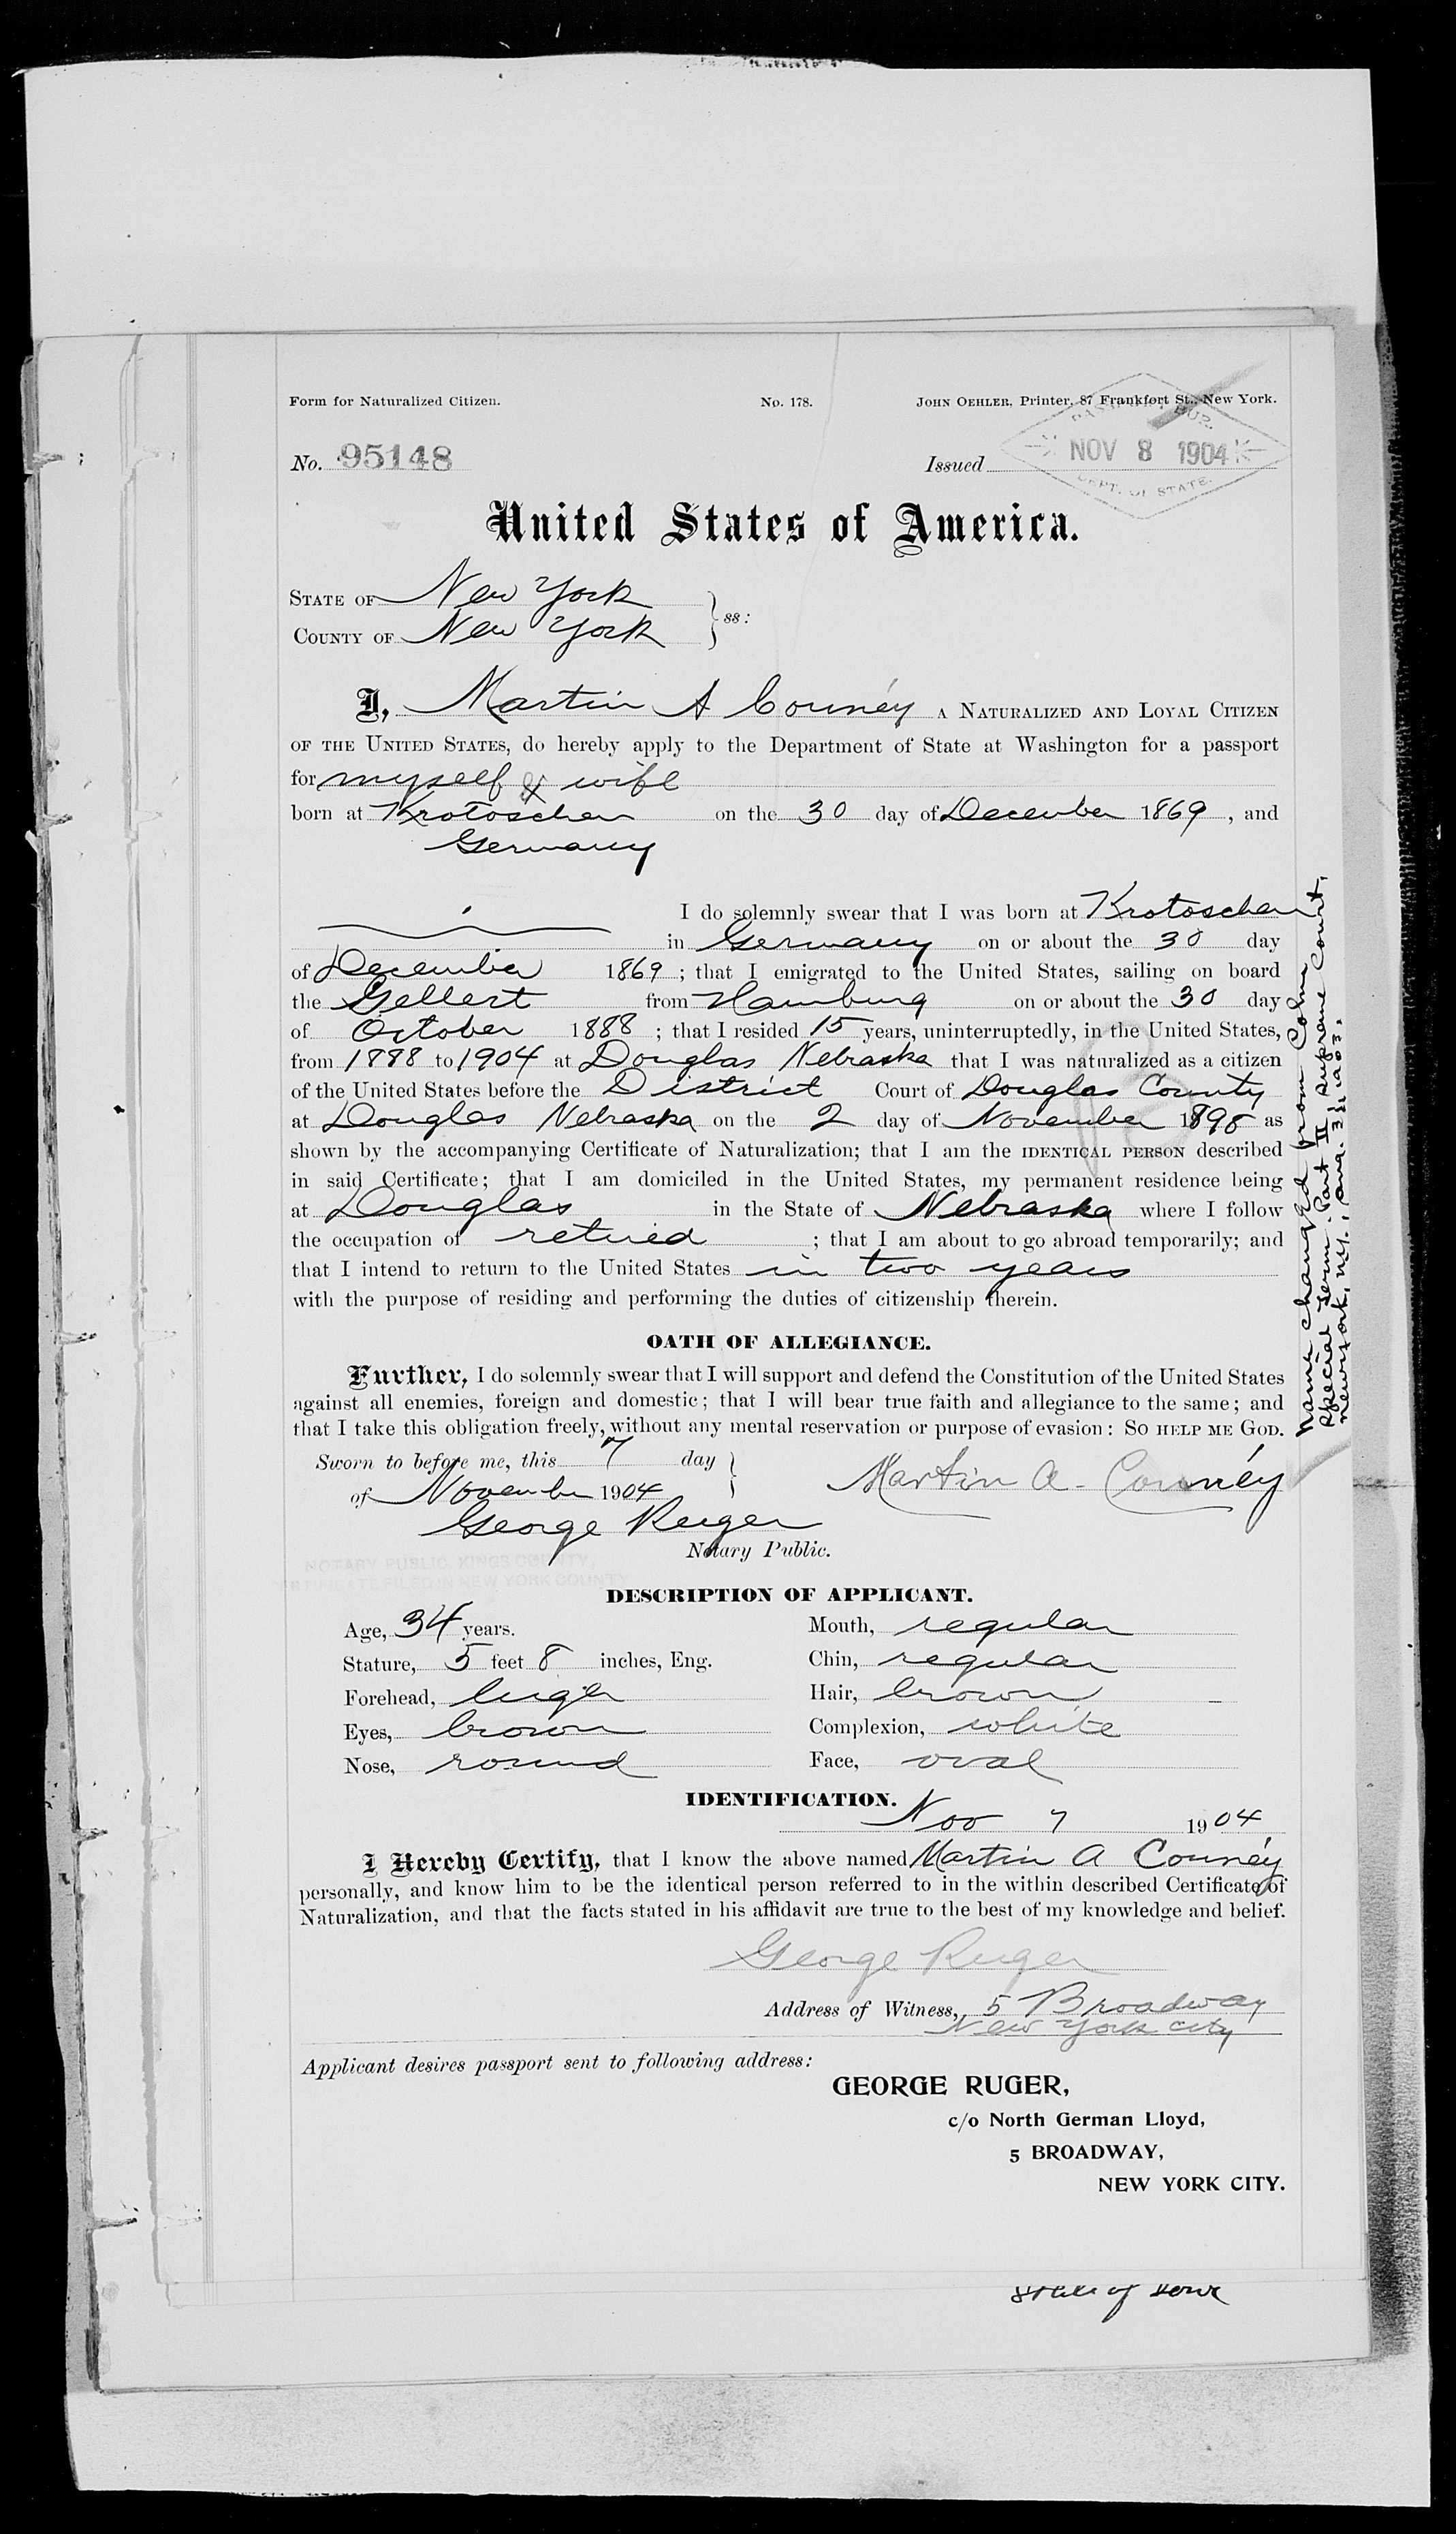 Form for Naturalized Citizen. No. 178. JOHN OEHLER, Printer, 87 Frankfort St., New York.
PASSPORT BUR.
No. 95148 Issued NOV 8 1904
DEPT. OF STATE.
United States of America.
STATE OF New York
COUNTY OF New York } ss:
I, Martin A Couney A NATURALIZED AND LOYAL CITIZEN
OF THE UNITED STATES, do hereby apply to the Department of State at Washington for a passport
for myself & wife
born at Krotoschen on the 30 day of December 1869, and
Germany
I do solemnly swear that I was born at Krotoschen
in Germany on or about the 30 day
of December 1869; that I emigrated to the United States, sailing on board
the Gellert from Hamburg on or about the 30 day
of October 1888; that I resided 15 years, uninterruptedly, in the United States,
from 1888 to 1904 at Douglas Nebraska that I was naturalized as a citizen
of the United States before the District Court of Douglas County
at Douglas Nebraska on the 2 day of November 1898 as
shown by the accompanying Certificate of Naturalization; that I am the IDENTICAL PERSON described
in said Certificate; that I am domiciled in the United States, my permanent residence being
at Douglas in the State of Nebraska where I follow
the occupation of retired; that I am about to go abroad temporarily; and
that I intend to return to the United States in two years
with the purpose of residing and performing the duties of citizenship therein.
Name changed from Cohn
Special Term. Part II, Supreme Court,
New York, N.Y., Aug. 3, 1903.
OATH OF ALLEGIANCE.
Further, I do solemnly swear that I will support and defend the Constitution of the United States
against all enemies, foreign and domestic; that I will bear true faith and allegiance to the same; and
that I take this obligation freely, without any mental reservation or purpose of evasion: SO HELP ME GOD.
Sworn to before me, this 7 day
of November 1904 Martin A. Couney
George Ruger
Notary Public.
NOTARY PUBLIC, KINGS COUNTY,
CERTIFICATE FILED IN NEW YORK COUNTY
DESCRIPTION OF APPLICANT.
Age, 34 years. Mouth, regular
Stature, 5 feet 8 inches, Eng. Chin, regular
Forehead, high Hair, brown
Eyes, brown Complexion, white
Nose, round Face, oval
IDENTIFICATION.
Nov 7 1904
I Hereby Certify, that I know the above named Martin A Couney
personally, and know him to be the identical person referred to in the within described Certificate of
Naturalization, and that the facts stated in his affidavit are true to the best of my knowledge and belief.
George Ruger
Address of Witness, 5 Broadway
New York City
Applicant desires passport sent to following address:
GEORGE RUGER,
c/o North German Lloyd,
5 BROADWAY,
NEW YORK CITY.
State of